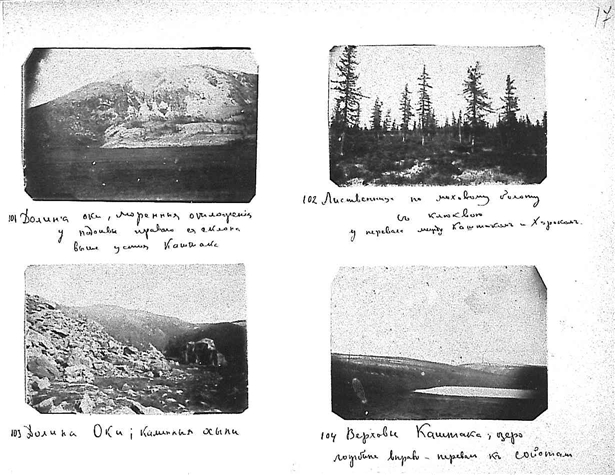 17
101 Долина оки, моренныя отложения
у подошвы праваго ея склона
выше устья Каштака
102 Лиственница по моховому болоту
съ клюквою
у перевала между Каштакомъ и
103 Долина Оки; каменныя
104 Верховье Каштака; озеро
вправо - перевал къ сойотам